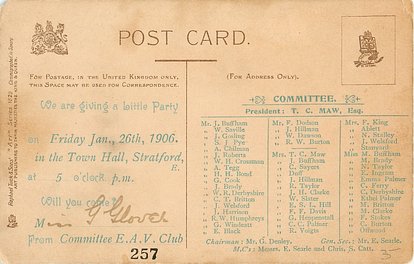 POST CARD.
FOR POSTAGE, IN THE UNITED KINGDOM ONLY,
THIS SPACE MAY BE USED FOR CORRESPONDENCE.
(FOR ADDRESS ONLY).
We are giving a Little Party
on Friday Jan., 26th, 1906.
in the Town Hall, Stratford,
E.,
at 5 o'clock, p.m.
Will you come?
Miss G Glover
From Committee E.A.V. Club
257
COMMITTEE.
President: T. C. MAW, Esq.
Mr. J. Buffham
" W. Saville
" J. Gosling
" S. J. Pye
" A. Chilman
" J. Roberts
" W. H. Crossman
" C. Tegg
" H. H. Bond
" G. Cook
" J. Brody
" W. R. Derbyshire
" C. T. Britton
" J. Welsford
" J. Harrison
" R.W. Humphreys
" G. Windsett
" E. Black
Mr. F. Dodson
" J. Hillman
" W. Dawson
" R. W. Burton
Mrs. T. C. Maw
" J. Buffham
" C. Sayers
" Duff
" J. Hillman
" R. Taylor
" J. H. Clarke
" W. Slater
" E. S. L. Hill
" F. F. Davis
" G. Heppenstell
" C. F. Palmer
" R. Voigts
Mrs. F. King
" Ablett
" N. Stalley
" J. Wolsford
" J. Clark
Miss M. Buffham
" M. Brady
" N. Taylor
" E. Ingram
" Emma Palmer
" E. Ferry
" E. Clarke
" Ethel Palmer
" M. Britton
" M. Clarke
" D. Howard
" B. Cook
" E. Burton
Chairman: Mr. G. Denley. Gen. Sec.: Mr. E. Searle.
M.C's: Messrs. E. Searle and Chris. S. Catt.
3